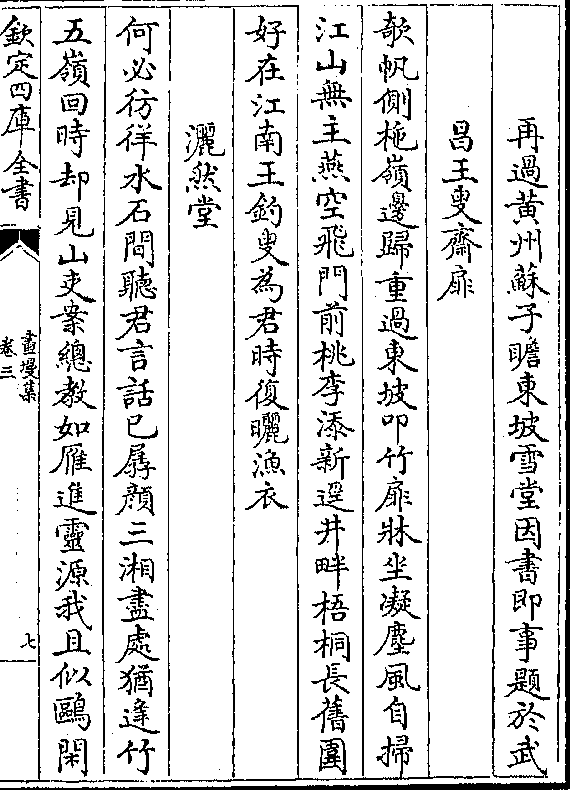 再過黄州蘇子瞻東坡雪堂因書即事題於武
昌王叟齋扉
欹帆側柂嶺邊歸重過東坡叩竹扉牀坐凝塵風自掃
江山無主燕空飛門前桃李添新逕井畔梧桐長舊圍
好在江南王釣叟為君時復曬漁衣
灑然堂
何必彷徉水石間聽君言話已孱顔三湘盡處猶逢竹
五嶺回時却見山吏案總教如雁進靈源我且似鷗閑
欽定四庫全書
畫墁集
卷三
七